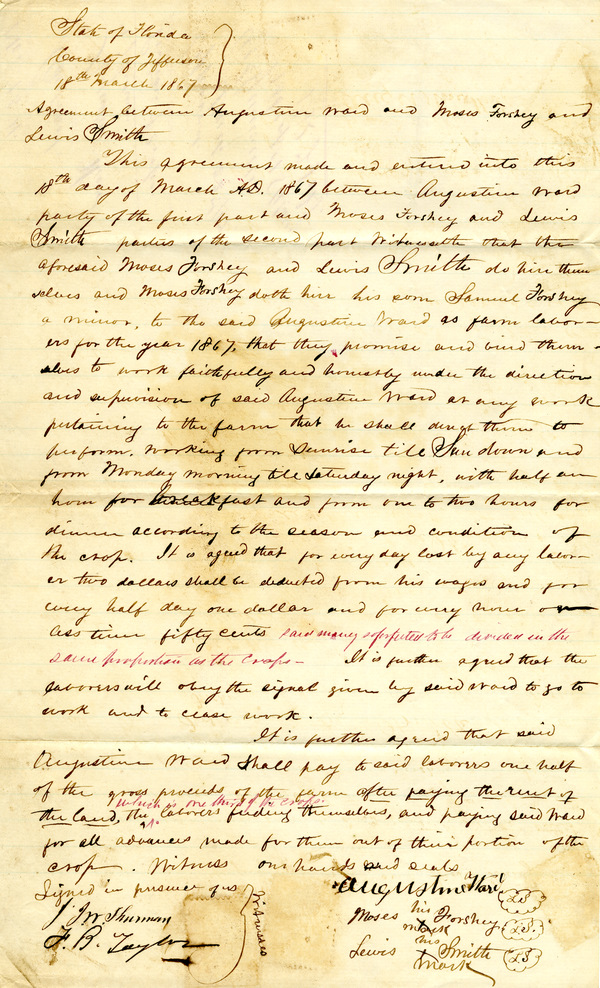 State of Florida
County of Jefferson
18th March 1867
Agreement between Augustine Ward and Moses Forshey and
Lewis Smith
This agreement made and entered into this
18th day of March A.D. 1867 between Augustine Ward
party of the first part and Moses Forshey and Lewis
Smith parties of the second part Witnesseth that the
aforesaid Moses Forshey and Lewis Smith do hire them
selves and Moses Forshey doth hire his son Samuel Forshey
a minor, to the said Augustine Ward as farm labor-
ers for the year 1867, that they promise and bind them-
selves to work faithfully and honestly under the direction
and supervision of said Augustine Ward at any work
pertaining to the farm that he shall direct them to
perform. Working from Sunrise till Sun down and
from Monday morning till Saturday night, with half an
hour for breakfast and from one to two hours for
dinner according to the season and condition of
the crop. It is agreed that for every day lost by any labor-
er two dollars shall be deducted from his wages and for
every half day one dollar and for every hour or
less time fifty cents said money so forfeited to be divided in the
same proportion as the crops - It is further agreed that the
laborers will obey the signal given by said Ward to go to
work and to cease work.
It is further agreed that said
Augustine Ward shall pay to said laborers one half
of the gross proceeds of the farm after paying the rent of
which is one third of the crops
the land, the laborers finding themselves, and paying said Ward
for all advances made for them out of their portion of the
crop. Witness our hands and seals
Signed in presence of us
J. W. Shuman
F. B. Taylor
Witnesses
Augustine Ward LS
Moses his mark Forshey LS.
Lewis his mark Smith LS